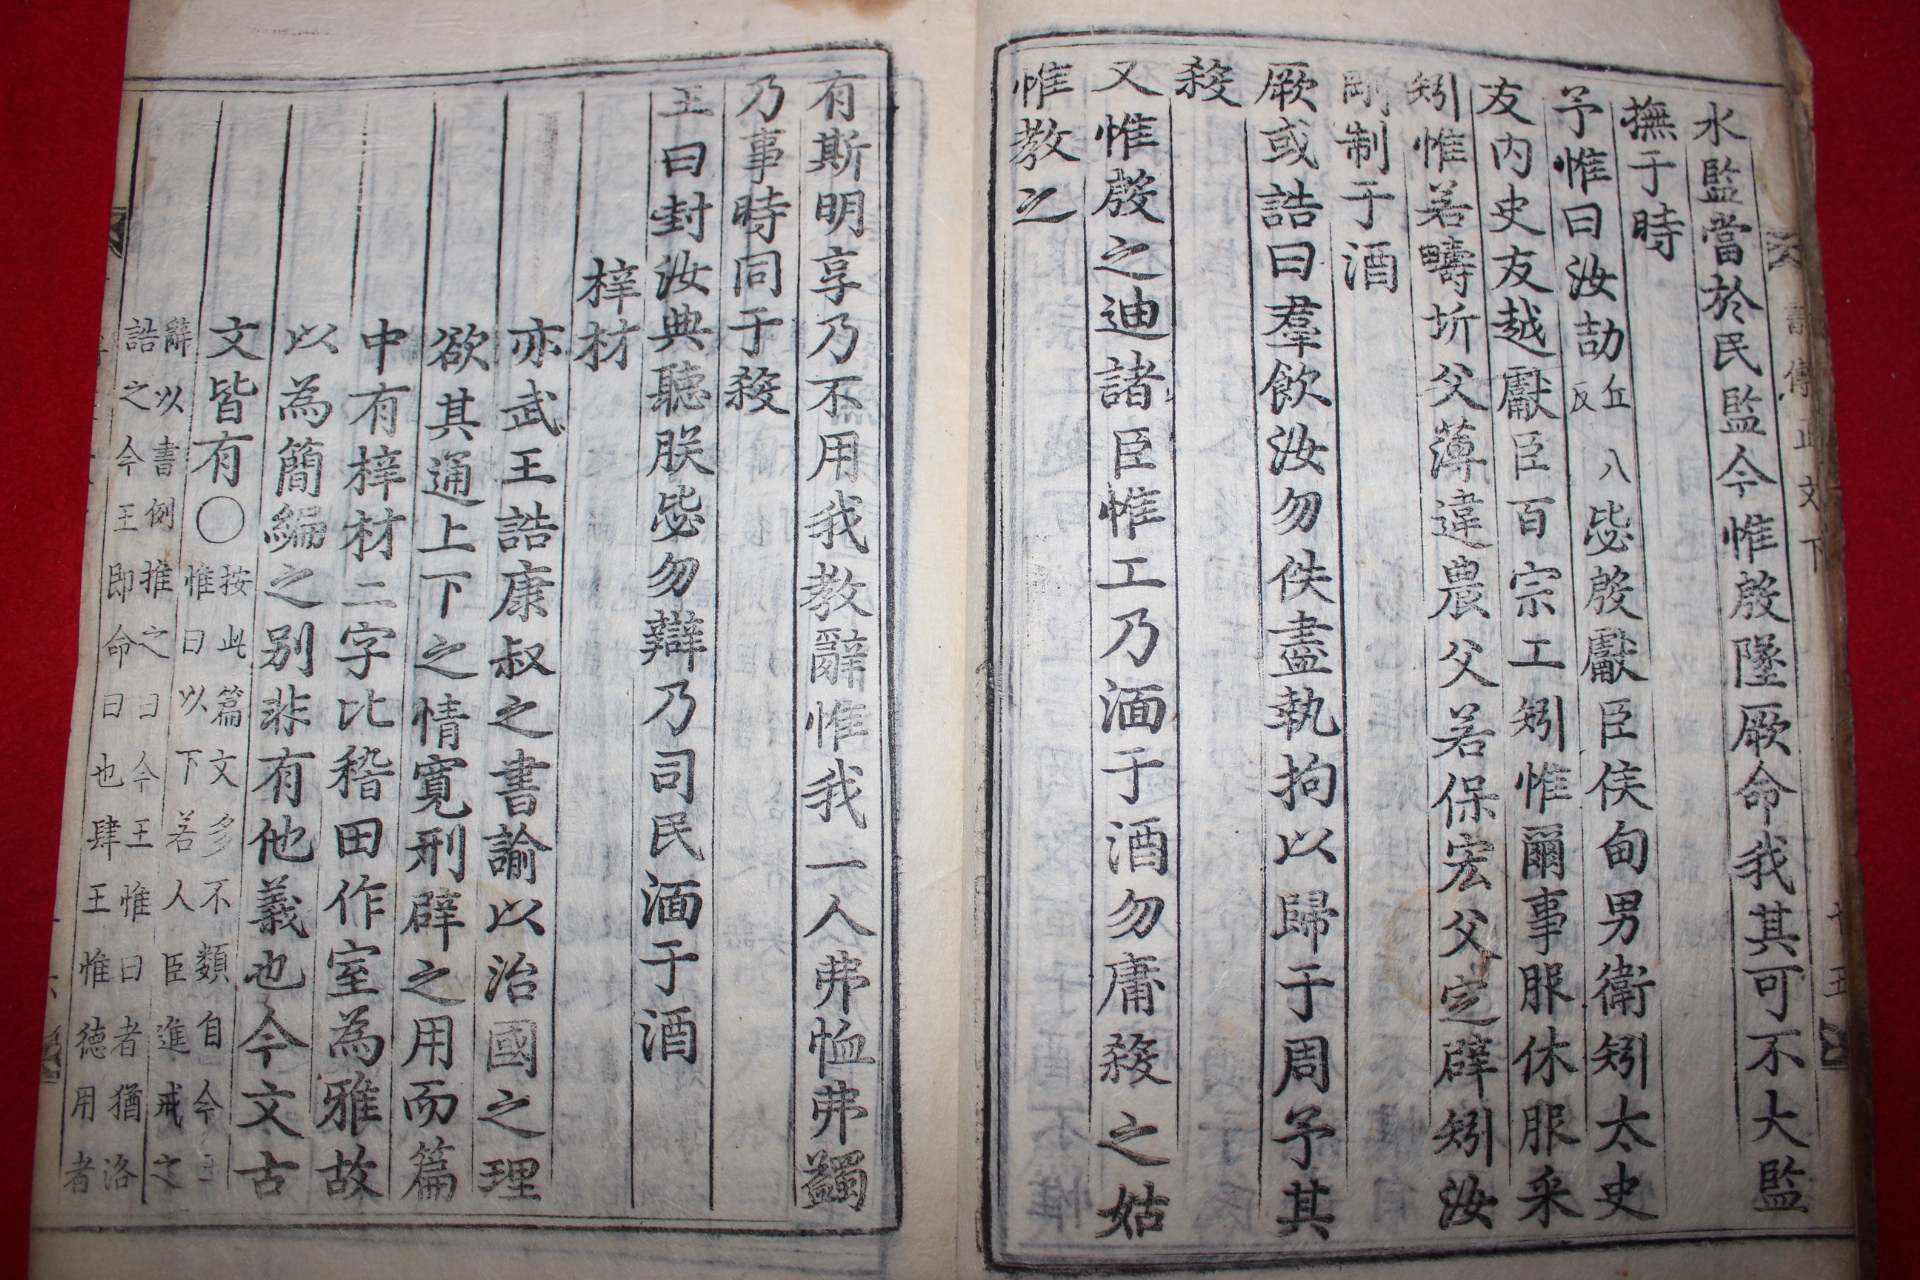 水監當於民監今惟殷墜厥命我其可不大監
撫于時
予惟曰汝劼丘八反毖殷獻臣侯甸男衛矧太史
友內史友越獻臣百宗工矧惟爾事服休服采
矧惟若疇圻父薄違農父若保宏父定辟矧汝
剛制于酒
厥或誥曰羣飮汝勿佚盡執拘以歸于周予其
殺
又惟殷之迪諸臣惟工乃湎于酒勿庸殺之姑
惟教之
有斯明享乃不用我教辭惟我一人弗恤弗蠲
乃事時同于殺
王曰封汝典聽朕毖勿辯乃司民湎于酒
梓材
亦武王誥康叔之書諭以治國之理
欲其通上下之情寬刑辟之用而篇
中有梓材二字比稽田作室為雅故
以為簡編之别非有他義也今文古
文皆有○按此篇文多不類自今王
惟曰以下若人臣進戒之
辭以書例推之曰今王惟曰者猶洛
誥之今王即命曰也肆王惟德用者